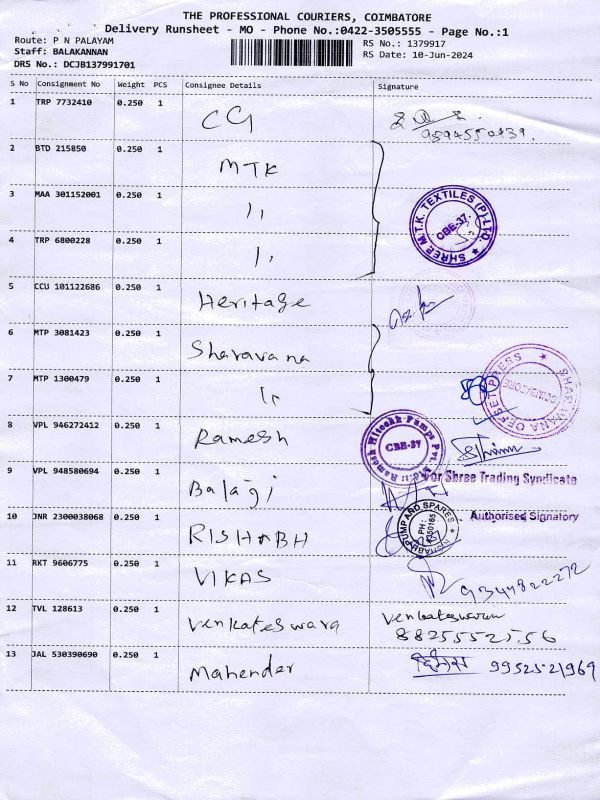 THE PROFESSIONAL COURIERS, COIMBATORE
Delivery Runsheet - MO - Phone No.:0422-3505555 - Page No.:1
Route: P N PALAYAM
RS No.: 1379917
Staff: BALAKANNAN
RS Date: 10-Jun-2024
DRS No.: DCJB137991701
S No Consignment No Weight PCS Consignee Details Signature
1 TRP 7732410 0.250 1 CG
2 BTD 215850 0.250 1 MTK
3 MAA 301152001 0.250 1 ,,
4 TRP 6800228 0.250 1 ,,
SHREE M.T.K. TEXTILES (P) LTD. ★ CBE-37.
5 CCU 101122686 0.250 1 Heritage
6 MTP 3081423 0.250 1 Sharavana
7 MTP 1300479 0.250 1 ,,
SHARAWANA OFFSET PRESS ★ COIMBATORE
8 VPL 946272412 0.250 1 Ramesh
CBE-37
9 VPL 948580694 0.250 1 Balaji
For Shree Trading Syndicate
Authorised Signatory
10 JNR 2300038068 0.250 1 RISHABH
RISHABH PUMP AND SPARES
11 RKT 9606775 0.250 1 VIKAS 9344822272
12 TVL 128613 0.250 1 Venkateswara Venkateswaran
8825552556
13 JAL 530390690 0.250 1 Mahender 9952521969